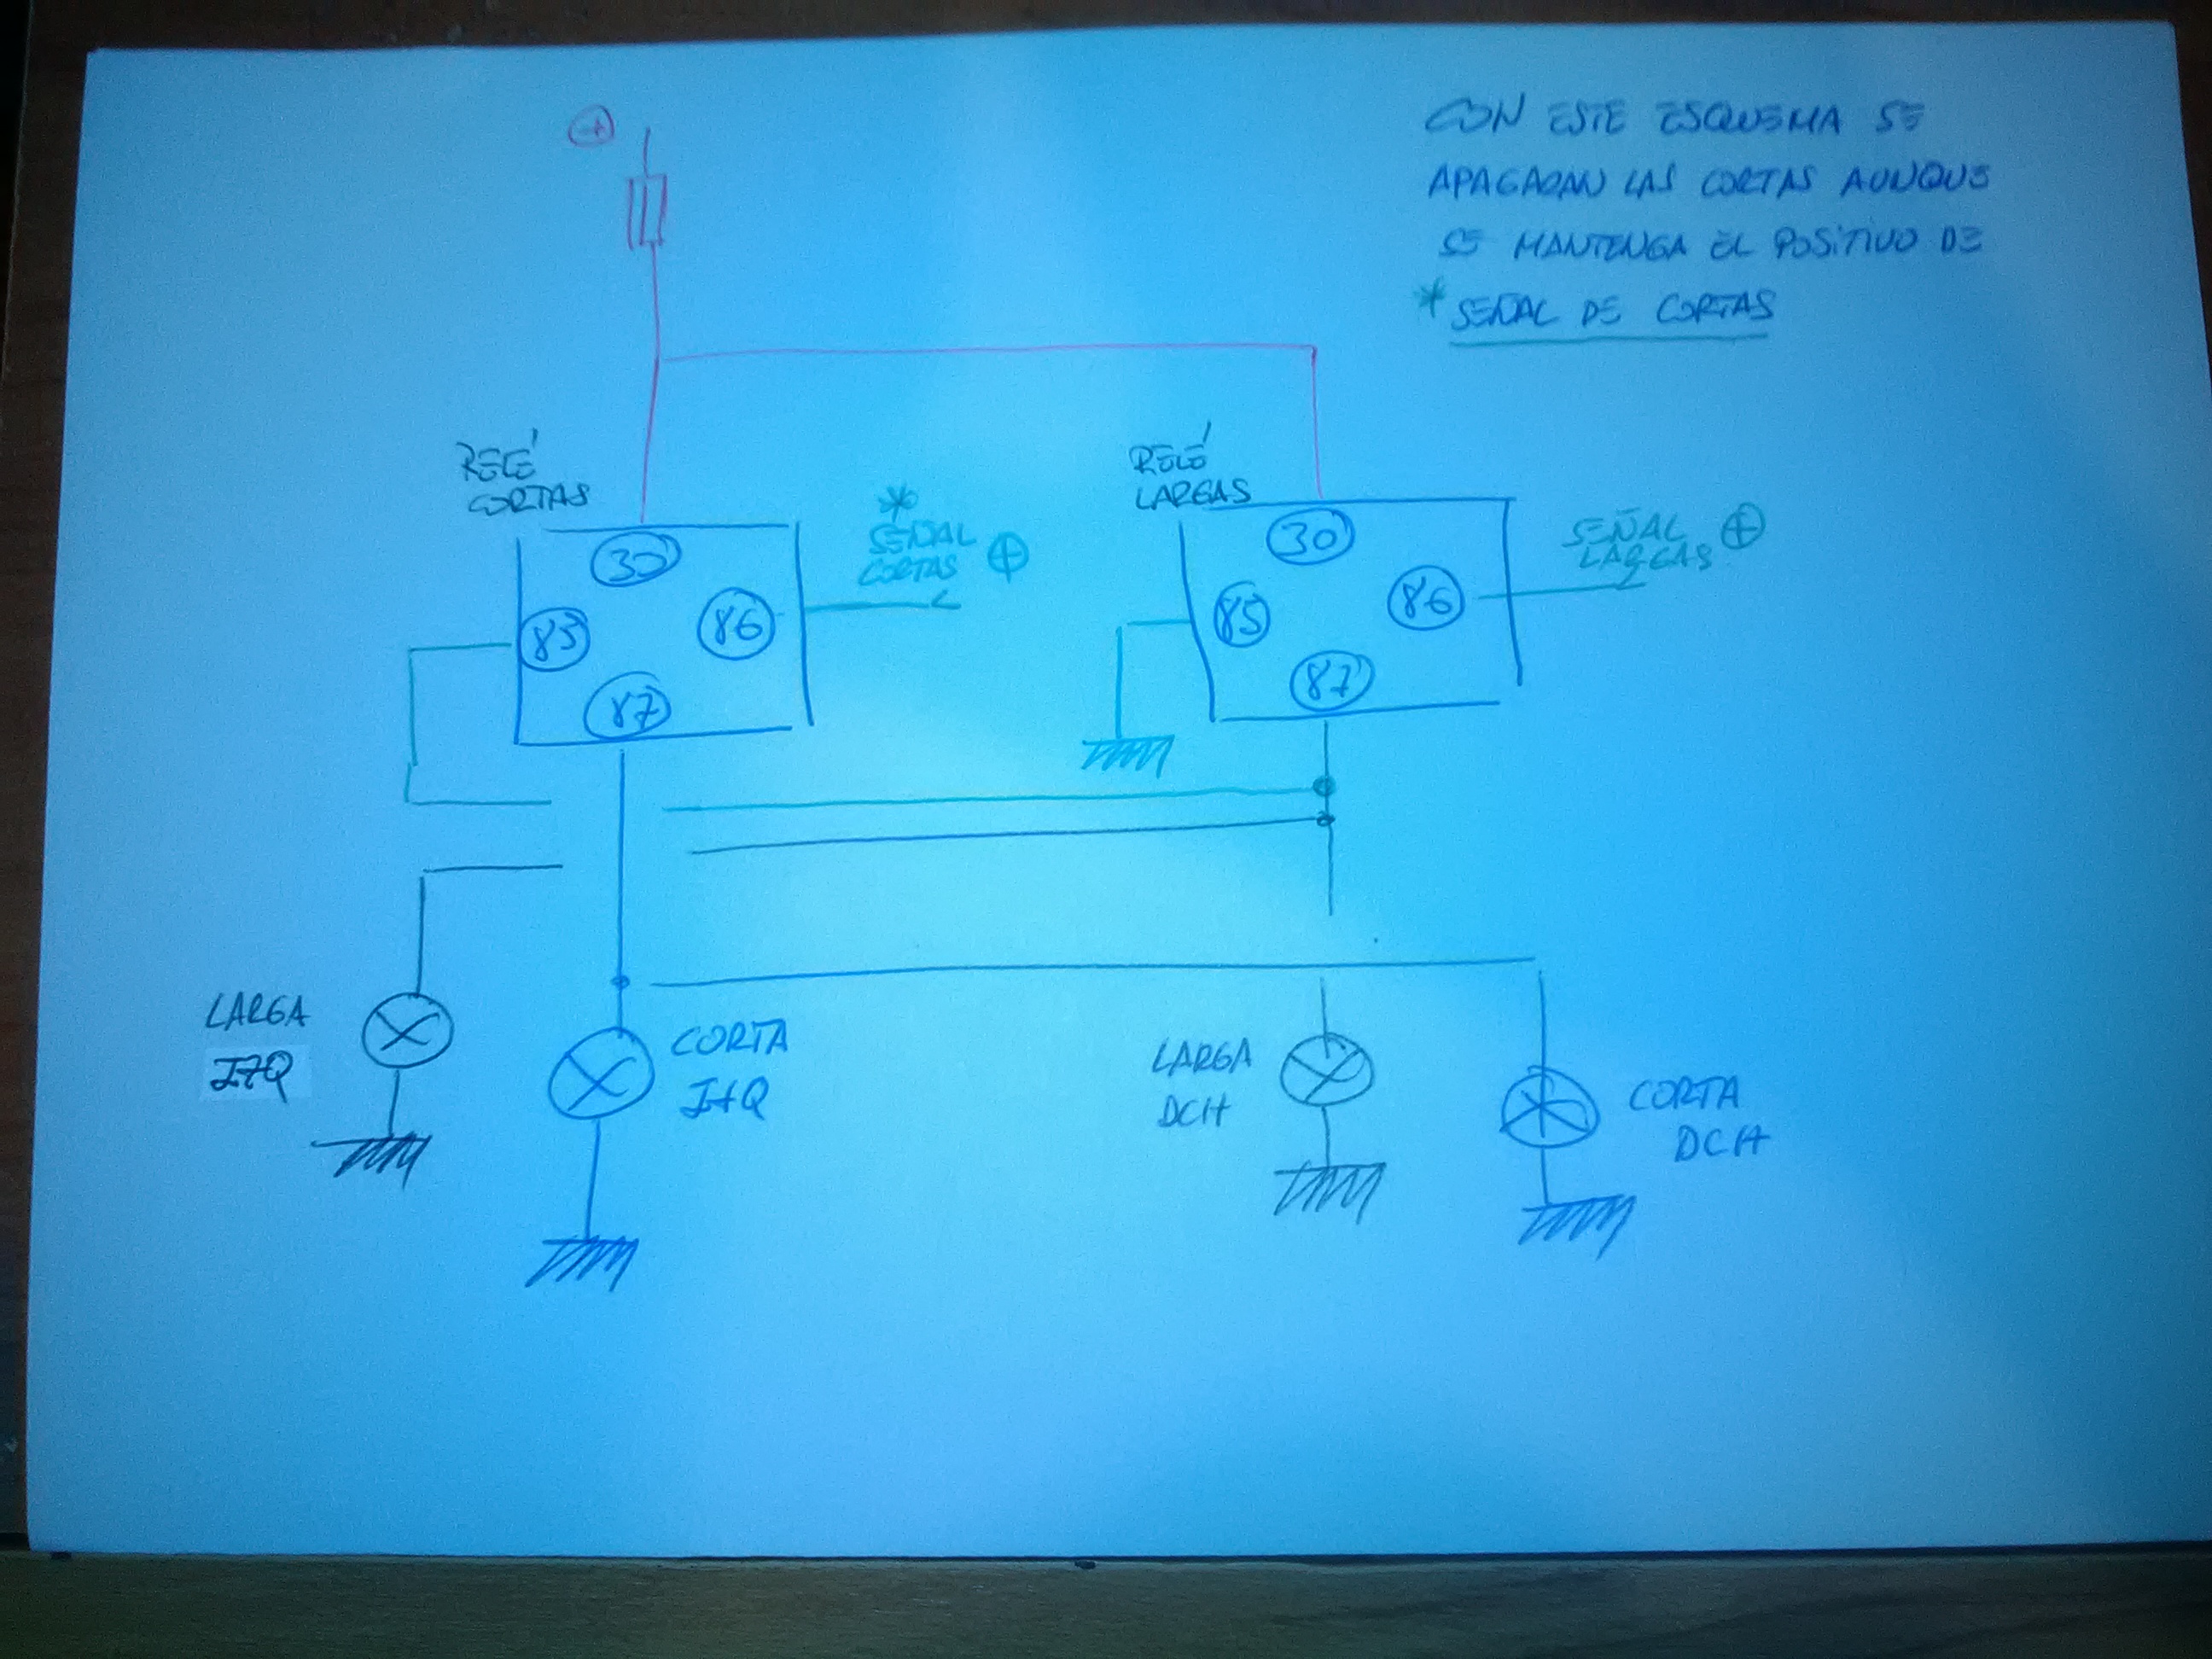 +
CON ESTE ESQUEMA SE
APAGARAN LAS CORTAS AUNQUE
SE MANTENGA EL POSITIVO DE
* SEÑAL DE CORTAS
RELÉ
CORTAS
30
85
86
87
*
SEÑAL
CORTAS +
RELÉ
LARGAS
30
85
86
87
SEÑAL +
LARGAS
LARGA
IZQ
CORTA
IZQ
LARGA
DCH
CORTA
DCH